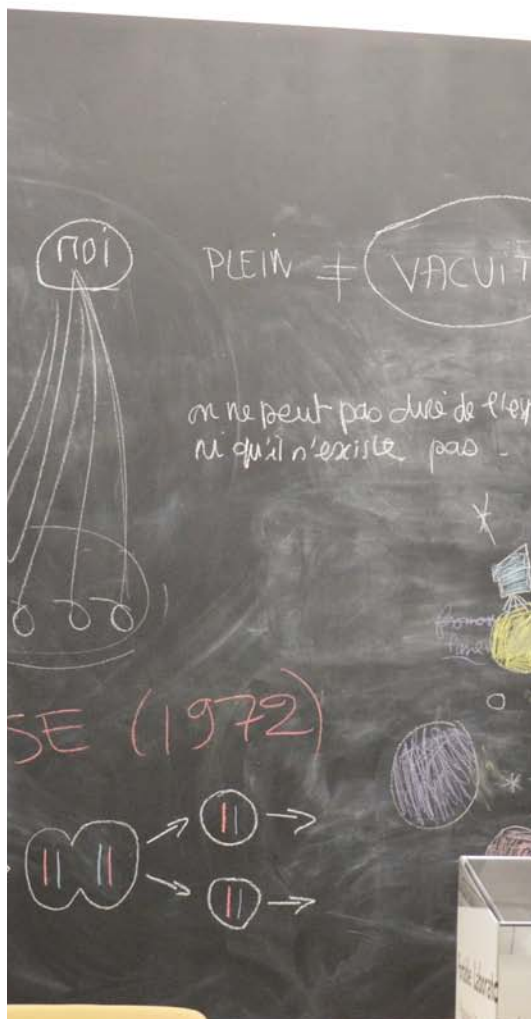 MOI
PLEIN ≠ VACUIT
on ne peut pas dire de l'es
ni qu'il n'existe pas -
SE (1972)